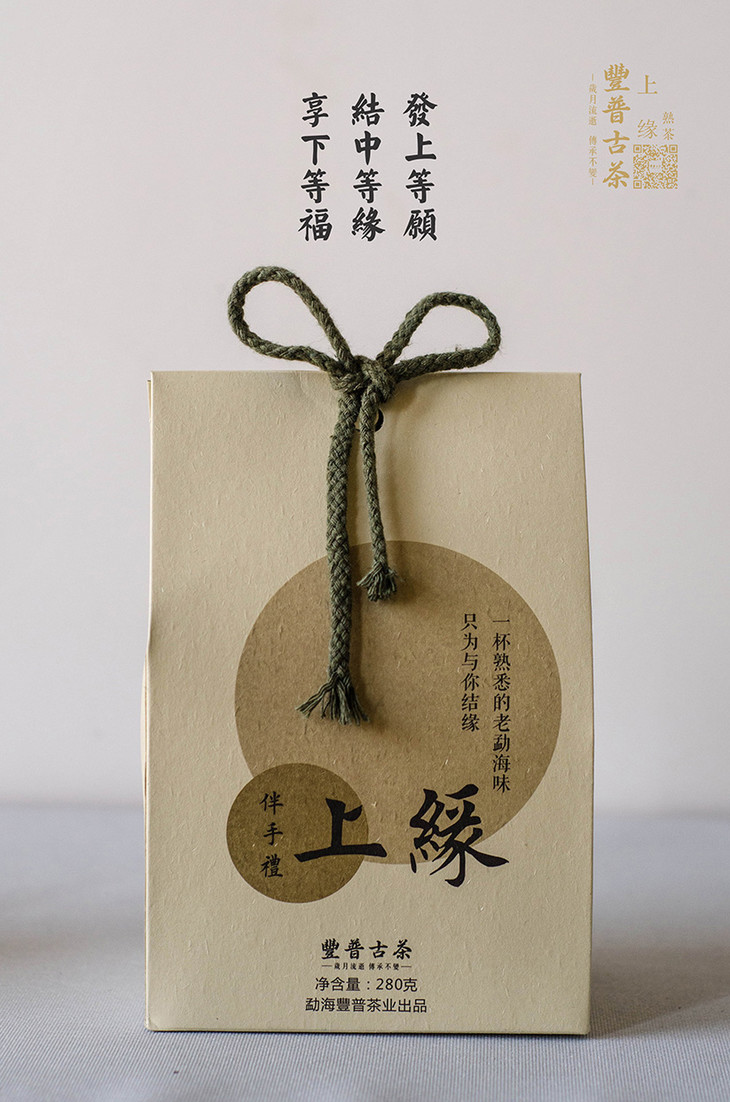 發上等願
結中等緣
享下等福
上缘
熟茶
豐普古茶
歲月流逝 傳承不變
一杯熟悉的老勐海味
只为与你结缘
上緣
伴手禮
豐普古茶
歲月流逝 傳承不變
净含量：280克
勐海豐普茶业出品